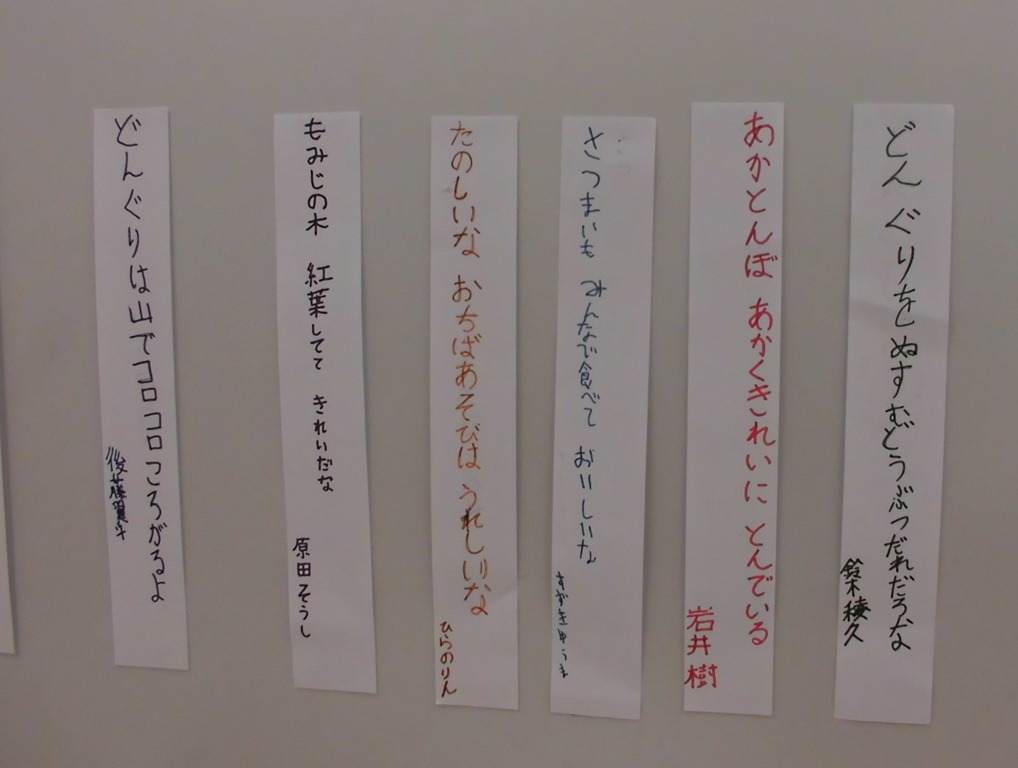 どんぐりをぬすむどうぶつだれだろな
鈴木稜久
あかとんぼ あかくきれいに とんでいる
岩井樹
さつまいも みんなで食べて おいしいな
すずきゆうま
たのしいな おちばあそびは うれしいな
ひらのりん
もみじの木 紅葉してて きれいだな
原田そうし
どんぐりは山でコロコロころがるよ
後藤